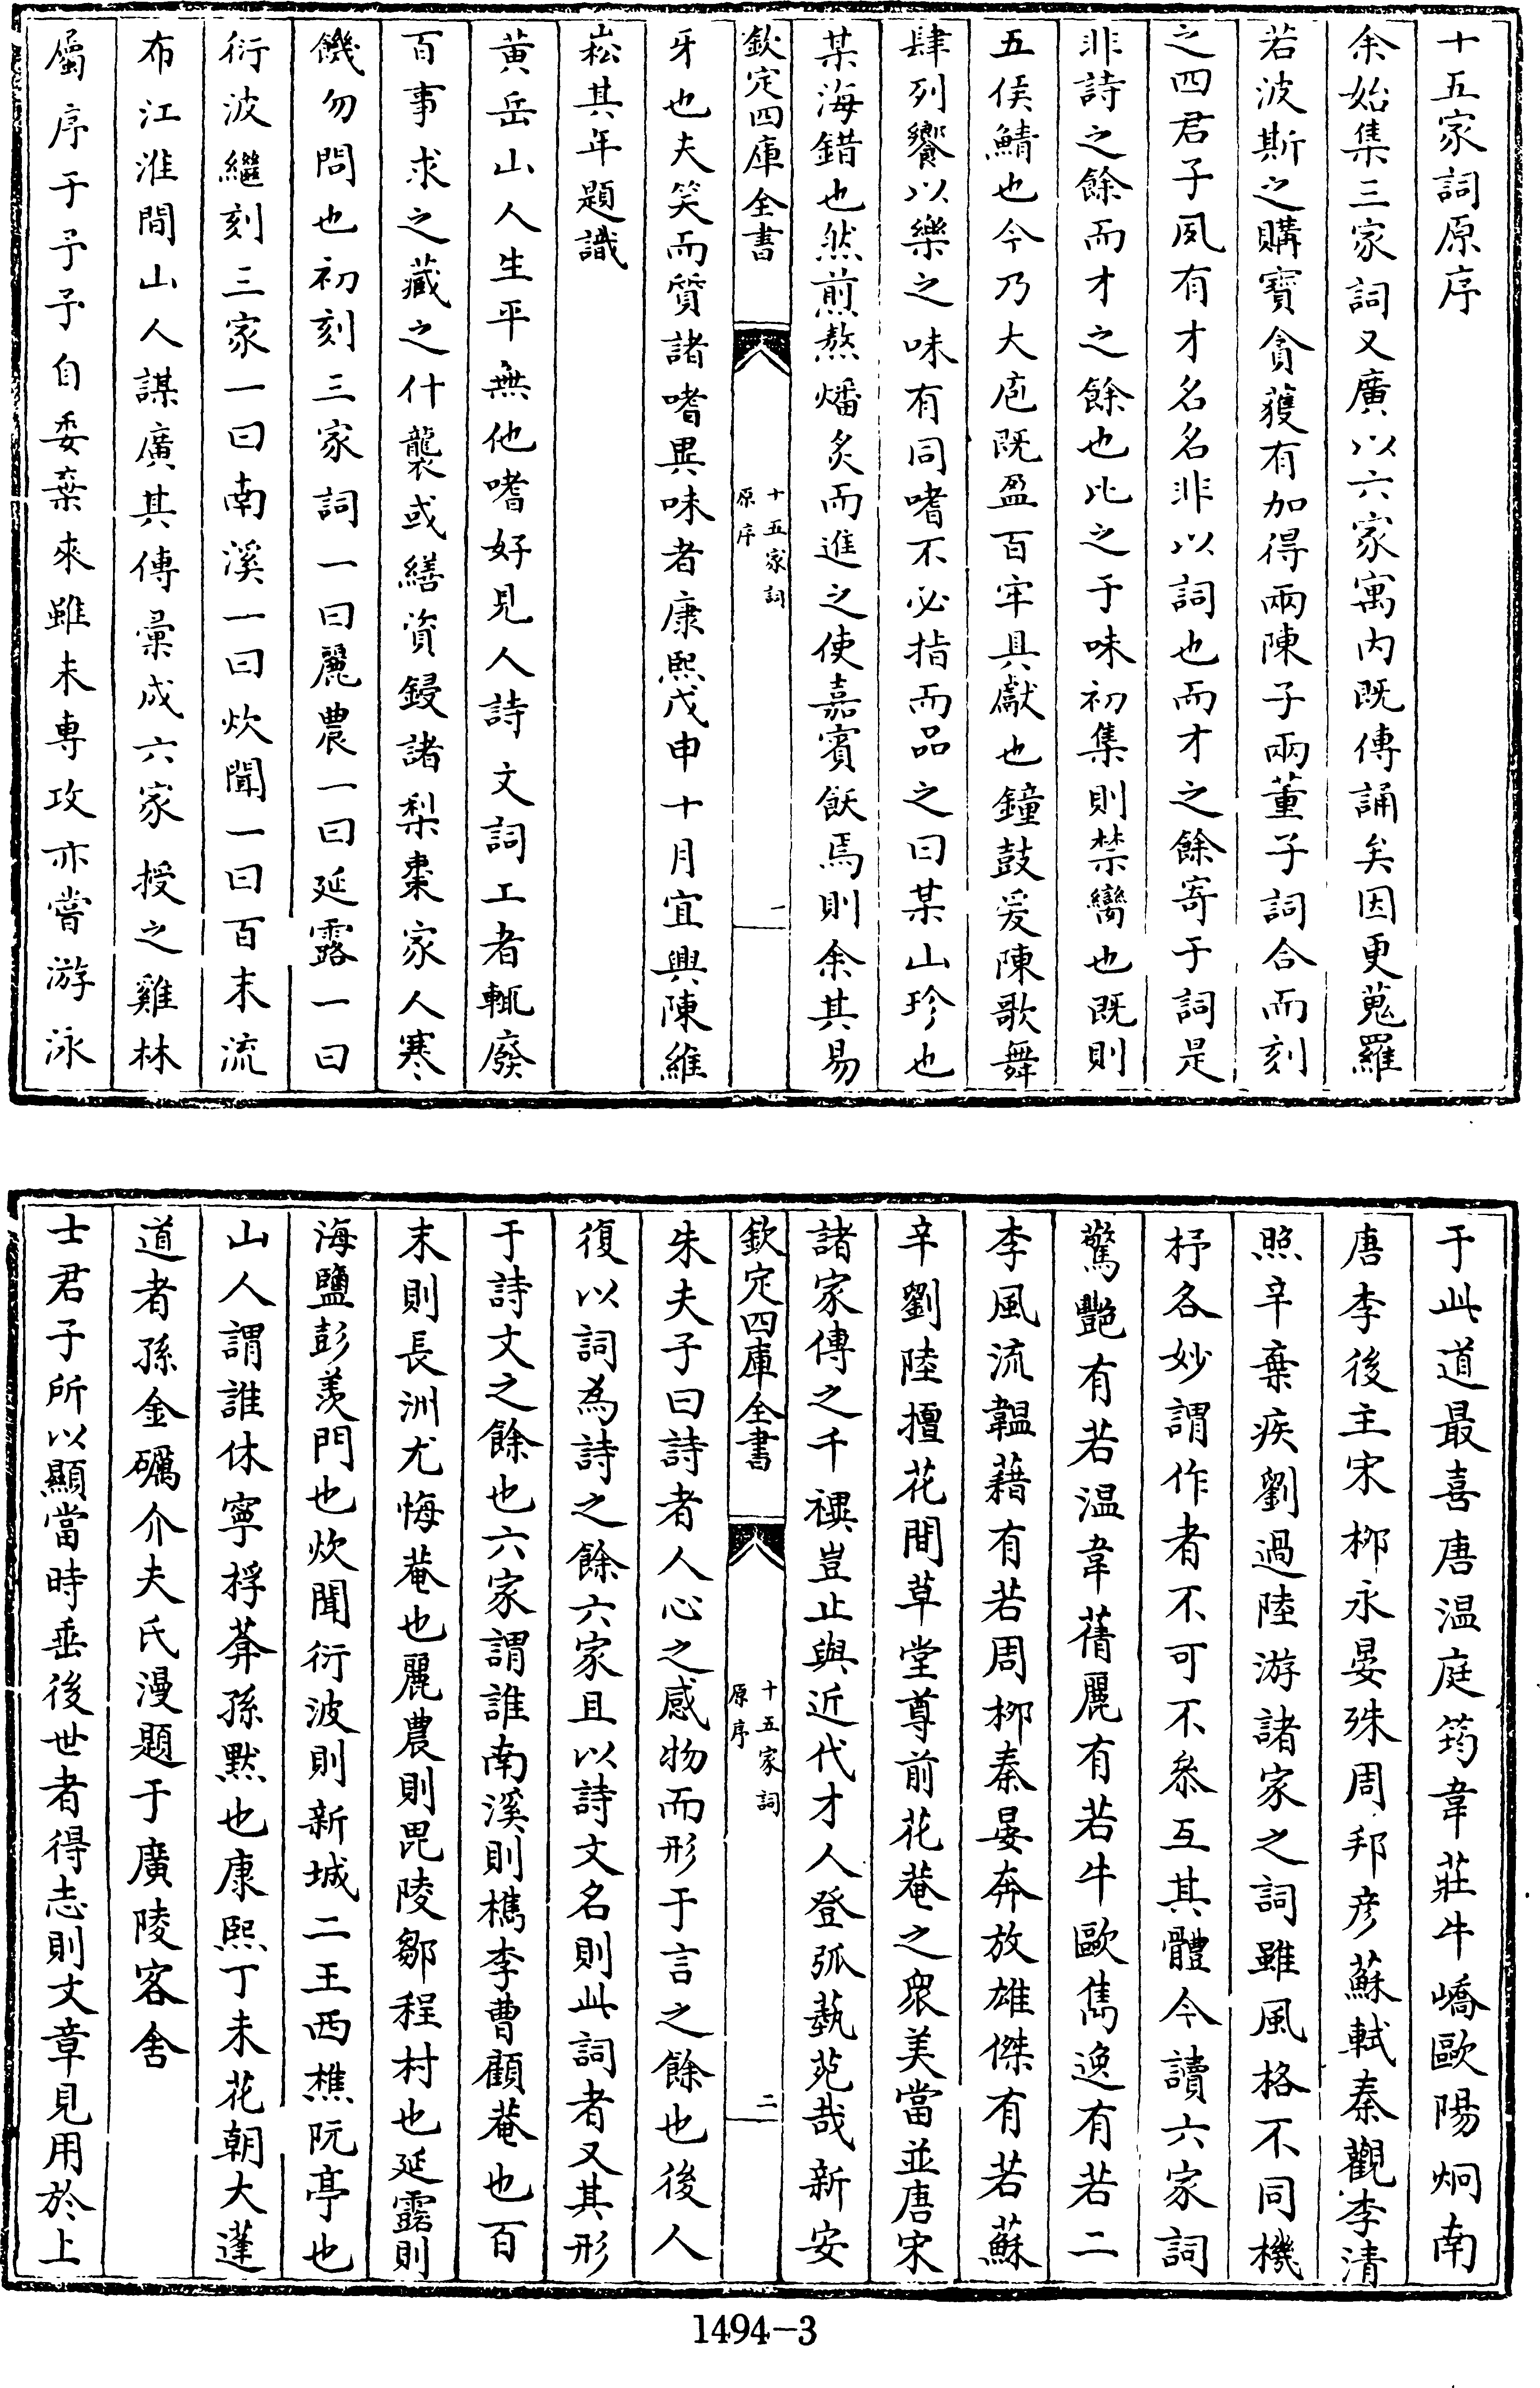 十五家詞原序
余始集三家詞又廣以六家寓内既傳誦矣因更蒐羅
若波斯之購寶貪獲有加得兩陳子兩董子詞合而刻
之四君子夙有才名名非以詞也而才之餘寄于詞是
非詩之餘而才之餘也比之于味初集則禁臠也既則
五侯鯖也今乃大庖既盈百牢具獻也鐘鼓爰陳歌舞
肆列饗以樂之味有同嗜不必指而品之曰某山珍也
某海錯也然煎熬燔炙而進之使嘉賓飫焉則余其易
欽定四庫全書
十五家詞
原序
一
牙也夫笑而質諸嗜異味者康熙戊申十月宜興陳維
崧其年題識
黄岳山人生平無他嗜好見人詩文詞工者輒廢
百事求之藏之什襲或繕資鋟諸梨棗家人寒
饑勿問也初刻三家詞一曰麗農一曰延露一曰
衍波繼刻三家一曰南溪一曰炊聞一曰百末流
布江淮間山人謀廣其傳彙成六家授之雞林
屬序于予予自委棄來雖未專攻亦嘗游泳
于此道最喜唐温庭筠韋莊牛嶠歐陽炯南
唐李後主宋柳永晏殊周邦彦蘇軾秦觀李清
照辛棄疾劉過陸游諸家之詞雖風格不同機
杼各妙謂作者不可不叅互其體今讀六家詞
驚艷有若温韋蒨麗有若牛歐雋逸有若二
李風流韞藉有若周柳秦晏奔放雄傑有若蘇
辛劉陸擅花間草堂尊前花菴之衆美當並唐宋
諸家傳之千禩豈止與近代才人登弧蓺苑哉新安
欽定四庫全書
十五家詞
原序
二
朱夫子曰詩者人心之感物而形于言之餘也後人
復以詞為詩之餘六家且以詩文名則此詞者又其形
于詩文之餘也六家謂誰南溪則檇李曹顧菴也百
末則長洲尤悔菴也麗農則毘陵鄒程村也延露則
海鹽彭羡門也炊聞衍波則新城二王西樵阮亭也
山人謂誰休寧桴葊孫黙也康熙丁未花朝大蓬
道者孫金礪介夫氏漫題于廣陵客舍
士君子所以顯當時垂後世者得志則文章見用於上
1494-3